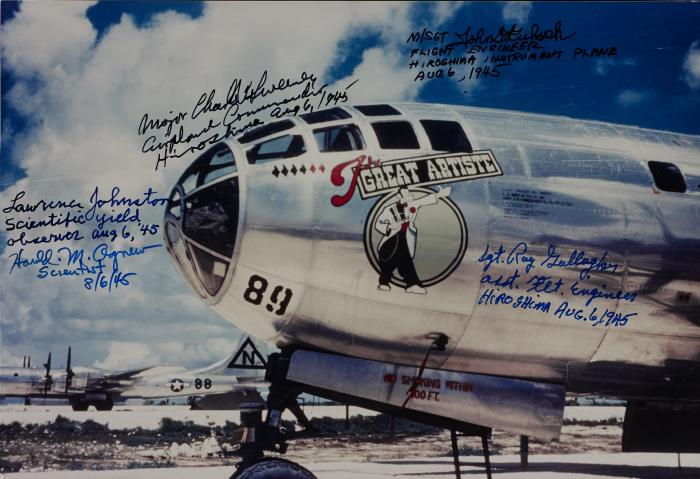 M/SGT John D. Kuharek
FLIGHT ENGINEER
HIROSHIMA INSTRUMENT PLANE
AUG 6, 1945
Major Charles W Sweeney
Airplane Commander
Hiroshima Aug 6, 1945
The
GREAT ARTISTE
Lawrence Johnston
Scientific yield
observer Aug 6, '45
Harold M. Agnew
Scientist
8/6/45
Sgt. Ray Gallagher
asst. Flt. Engineer
HIROSHIMA AUG. 6, 1945
89
N
88
NO SMOKING WITHIN
100 FT.